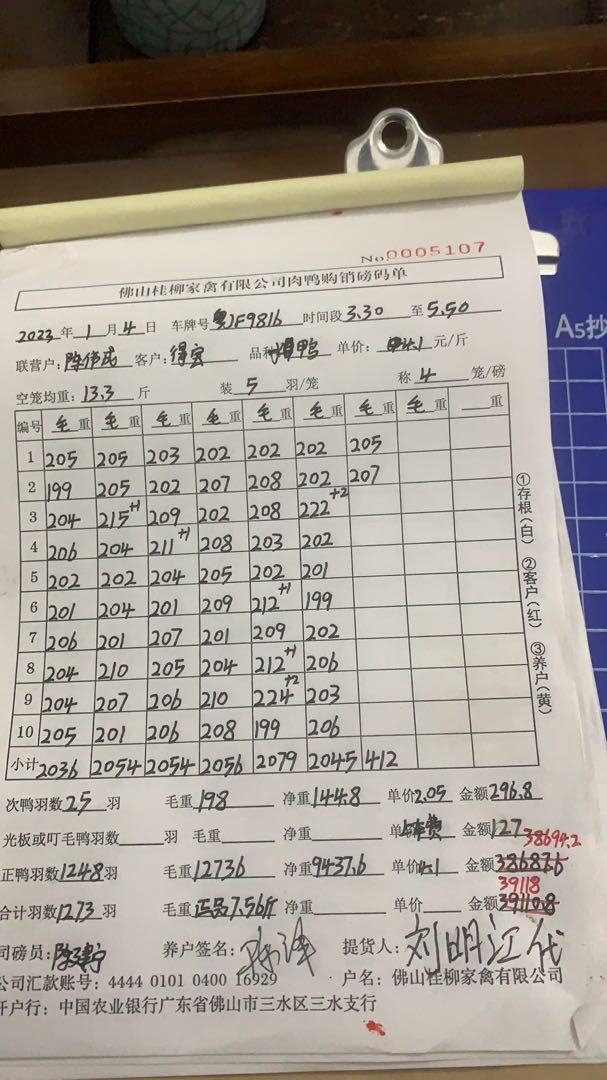 No 0005107
佛山桂柳家禽有限公司肉鸭购销磅码单
2023年1月4日 车牌号粤JF9816 时间段3.30至5.50
联营户:陈伟成 客户: 品种 鸭 单价:4.1元/斤
空笼均重:13.3斤 装5羽/笼 称4笼/磅
编号 毛重 毛重 毛重 毛重 毛重 毛重 毛重 毛重 重
1 205 205 203 202 202 202 205
2 199 205 202 207 208 202 207
3 204 215+1 209 202 208 222+2
4 206 204 211+1 208 203 202
5 202 202 204 205 202 201
6 201 204 201 209 212+1 199
7 206 201 207 201 209 202
8 204 210 205 204 212+1 206
9 204 207 206 210 224+2 203
10 205 201 206 208 199 206
小计 2036 2054 2054 2056 2079 2045 412
①存根(白) ②客户(红) ③养户(黄)
次鸭羽数25羽 毛重198 净重144.8 单价2.05 金额296.8
光板或叮毛鸭羽数 羽 毛重 净重 单 费 金额127
38694.2
正鸭羽数1248羽 毛重12736 净重9437.6 单价4.1 金额38687.6
39118
合计羽数1273羽 毛重正品7.56斤 净重 单价 金额39110.8
司磅员: 养户签名: 提货人:刘明江代
公司汇款账号:4444 0101 0400 16929 户名:佛山桂柳家禽有限公司
开户行:中国农业银行广东省佛山市三水区三水支行
A5抄